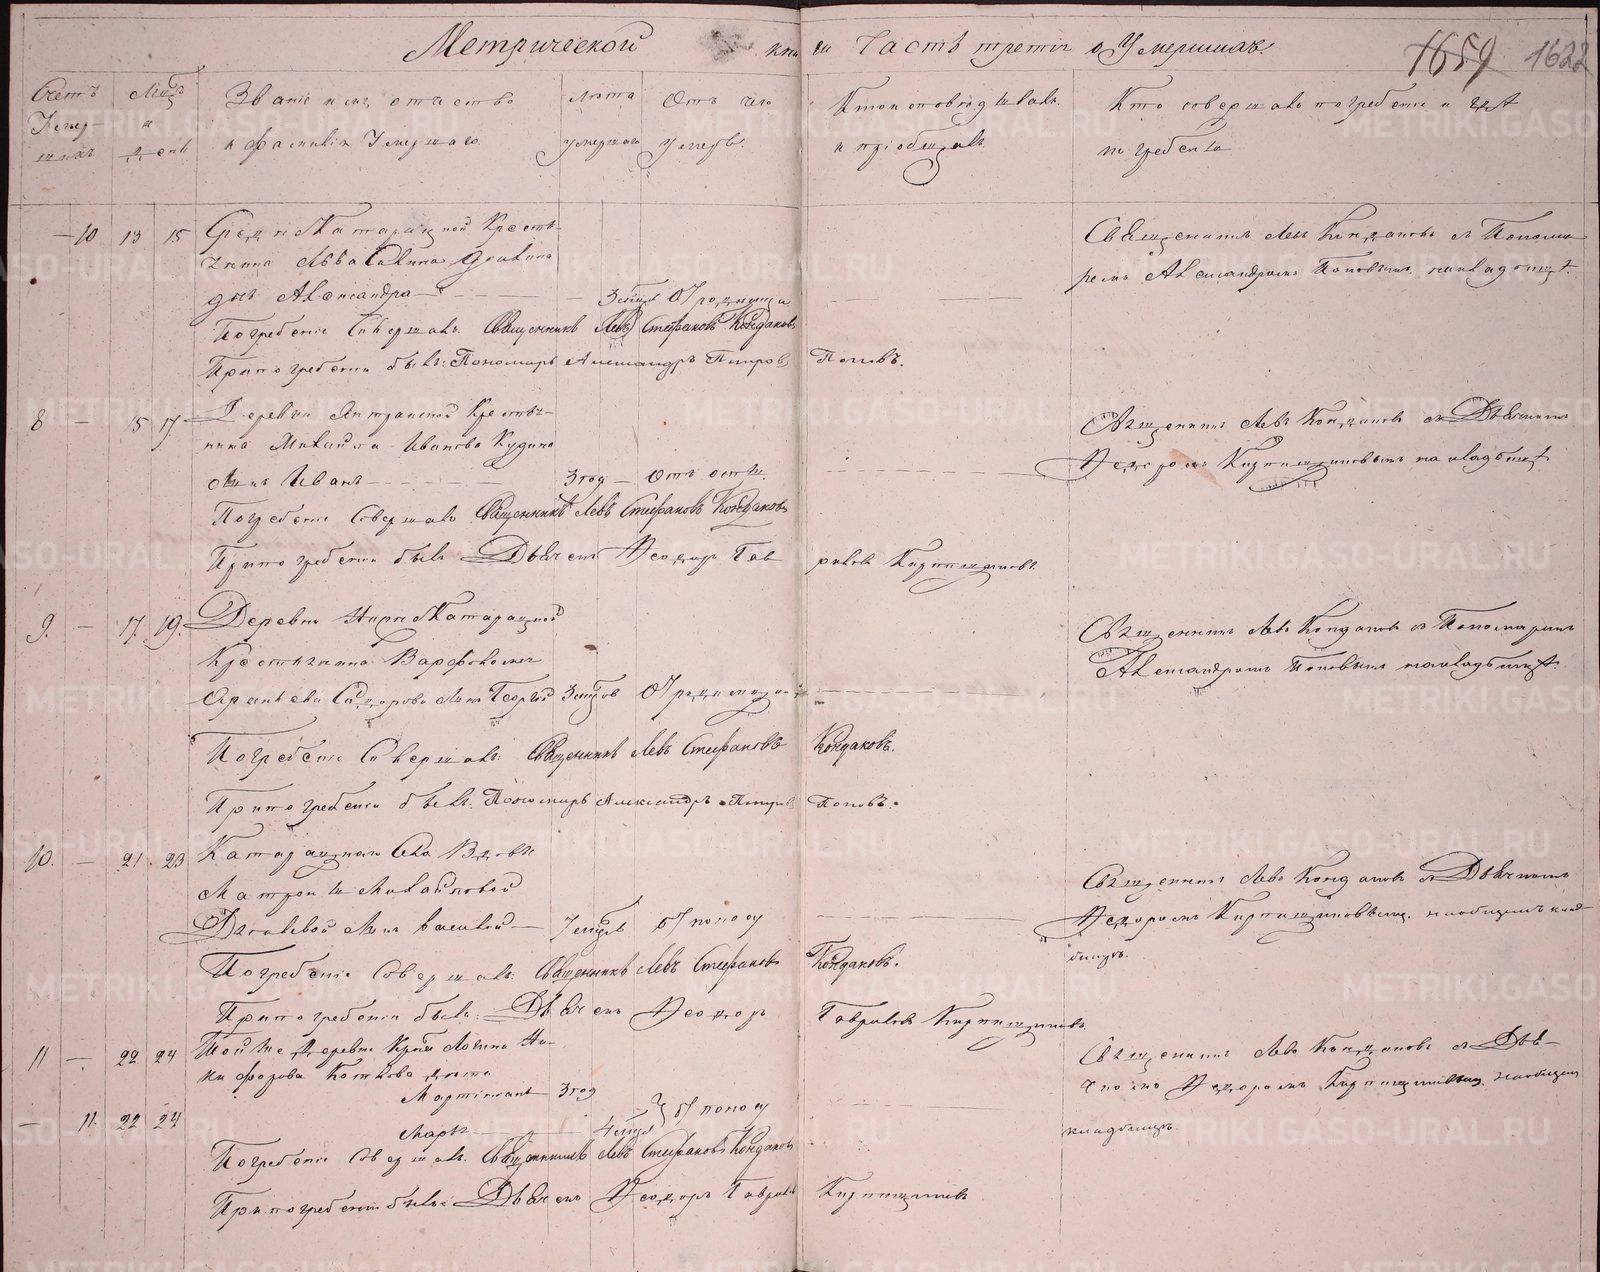 Метрической книги Часть третiя о Умершихъ
1659 1622
Счетъ Умер-шихъ
Мѣсяцъ и день
Званiе имя отчество и фамилiя Умершаго
лѣта умершаго
Отъ чего умеръ.
Кто исповѣдывалъ и прiобщалъ
Кто совершалъ погребенiе и гдѣ погребены
— 10 13 15 Села Катарацкой Кресть-
янина Савина
дочь Александра — 3 мѣсяц. От родимца
Священникъ Левъ Кондаковъ съ Понома-
ремъ Александромъ Поповымъ на кладбищѣ.
Погребенiе Совершалъ Священникъ Левъ Стефановъ Кондаковъ
При погребенiи былъ: Пономарь Александръ Петровъ Поповъ.
8 — 15 17 Деревни Крестья-
нина Михаила Иванова Кудина
сынъ Иванъ — 3 год — Отъ оспы.
Священникъ Левъ Кондаковъ съ Дьячкомъ
Ѳедоромъ Кирпищиковымъ на кладбищѣ
Погребенiе Совершалъ Священникъ Левъ Стефановъ Кондаковъ
При погребенiи былъ Дьячекъ Ѳеодоръ Гавриловъ Кирпищиковъ.
9. — 17. 19. Деревни Катарацкой
Крестьянина Варфоломея
Сидорова сынъ Георгiй 3 мѣсяцов От родимца
Священникъ Левъ Кондаковъ съ Пономаремъ
Александромъ Поповымъ на кладбищѣ.
Погребенiе Совершалъ: Священникъ Левъ Стефановъ Кондаковъ.
При погребенiи былъ: Пономарь Александръ Петровъ Поповъ.
10. — 21. 23 Катарацкаго Села Вдовы
Матроны Михайловой
сынъ Василiй — 7 мѣсяц. От поносу
Священникъ Левъ Кондаковъ съ Дьячкомъ
Ѳедоромъ Кирпищиковымъ на общемъ клад-
бищѣ.
Погребенiе Совершалъ: Священникъ Левъ Стефановъ Кондаковъ.
При погребенiи былъ: Дьячекъ Ѳеодоръ Гавриловъ Кирпищиковъ.
11 — 22 24 Той же Деревни Логина Ни-
кифорова Коткова дѣти
Мартинiанъ 3 год
Священникъ Левъ Кондаковъ съ Дья-
чкомъ Ѳедоромъ Кирпищиковым. на общем
кладбищѣ.
— 11. 22 24 Марья — 4 От поносу
Погребенiе Совершалъ. Священникъ Левъ Стефановъ Кондаковъ
При погребенiи былъ: Дьячекъ Ѳеодоръ Гавриловъ Кирпищиковъ
METRIKI.GASO-URAL.RU